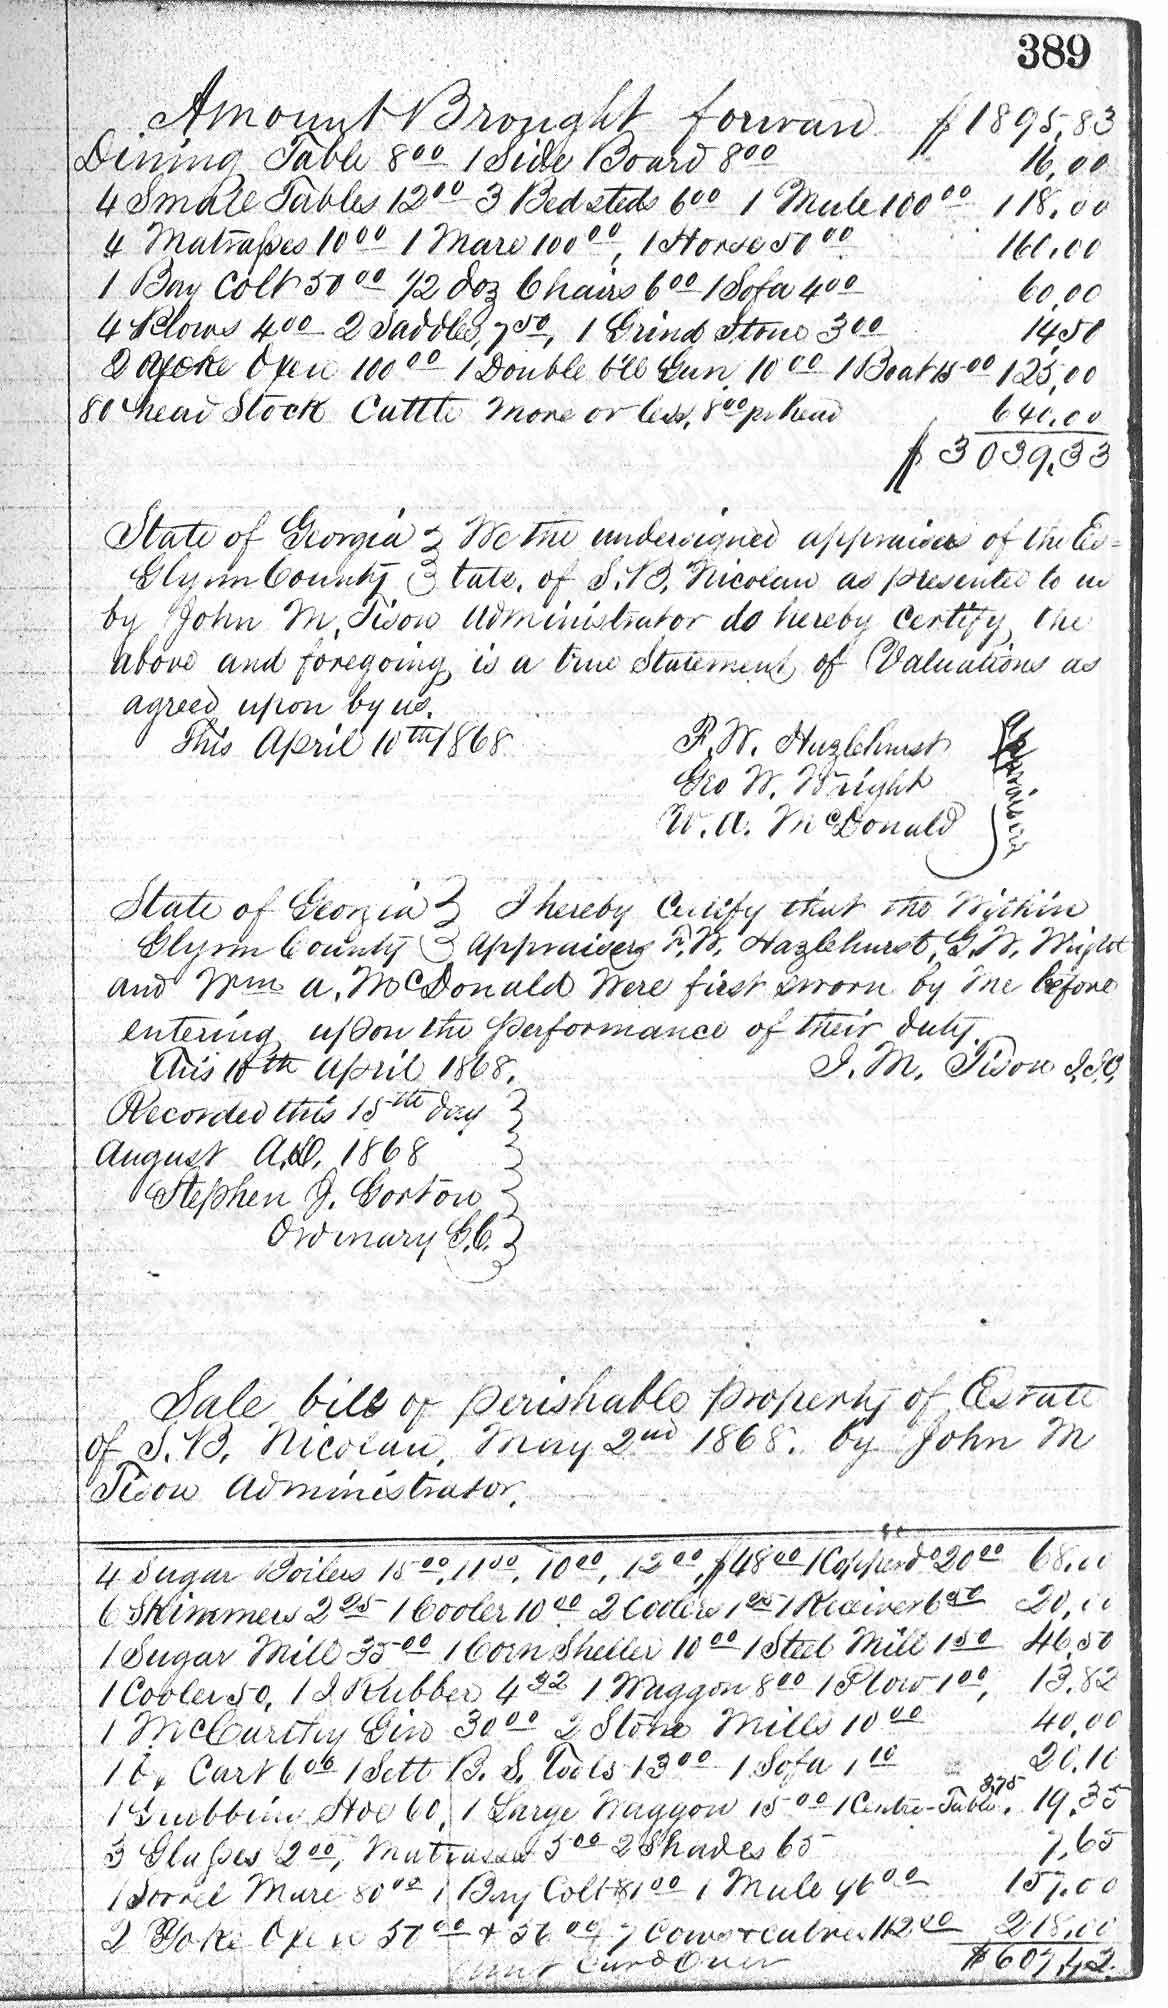 389
Amount Brought forward $1895.83
Dining Table 8 00 1 Side Board 8 00 16,00
4 Small Tables 12 00 3 Bedsteds 6 00 1 Mule 100 00 118.00
4 Matrasses 10 00 1 Mare 100 00, 1 Horse 50 00 160.00
1 Bay Colt 50 00 1/2 doz Chairs 6 00 1 Sofa 4 00 60,00
4 Plows 4 00 2 Saddles, 7 50, 1 Grind Stone 3 00 14,50
2 Yoke Oxen 100 00 1 Double bll Gun 10 00 1 Boat 15 00 125,00
80 head Stock Cattle more or less, 8 00 pr head 640.00
$3039.33
State of Georgia } We the undersigned appraisers of the Es=
Glynn County } tate, of S. B. Nicolau as presented to us
by John M. Tison Administrator do hereby certify the
above and foregoing is a true Statement of Valuations as
agreed upon by us.
This April 10th 1868
F. W. Hazlehurst
Geo W. Wright
W. A. McDonald
Appraisers
State of Georgia } I hereby Certify that the Within
Glynn County } Appraisers F. W. Hazlehurst, G. W. Wright
and Wm A. McDonald Were first sworn by me before
entering upon the performance of their duty.
This 10th April 1868. J. M. Tison J.I.C.
Recorded this 15th day
August A.D. 1868
Stephen J. Gorton
Ordinary G.C.
Sale bill of perishable property of Estate
of S. B. Nicolau, May 2nd 1868. by John M
Tison Administrator.
4 Sugar Boilers 15 00, 11 00, 10 00, 12 00, $48 00 1 Copper do 20 00 68.00
6 Skimmers 2 25 1 Cooler 10 00 2 Coolers 1 25 1 Receiver 6 50 20.00
1 Sugar Mill 35 00 1 Corn Sheller 10 00 1 Steel Mill 1 50 46,50
1 Cooler 50, 1 I Rubber 4 32 1 Waggon 8 00 1 Plow 1 00, 13.82
1 McCarthy Gin 30 00 2 Stone Mills 10 00 40,00
1 Ox Cart 6 00 1 Sett B. S. Tools 13 00 1 Sofa 1 10 20.10
1 Grubbing Hoe 60, 1 Large Waggon 15 00 1 Centre-Table 3,75. 19,35
3 Glasses 2 00, Matrasses 3 00 2 Shades 65 7,65
1 Sorrel Mare 80 00 1 Bay Colt 31 00 1 Mule 46 00 157.00
2 Yoke Oxen 50 00 & 56 00 7 Cows & calves 112 00 218.00
Amt Card Over $607,42